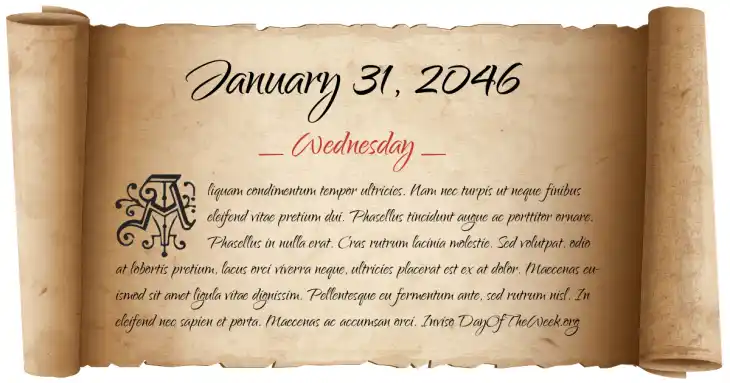 January 31, 2046
— Wednesday —
Aliquam condimentum tempor ultricies. Nam nec turpis ut neque finibus
eleifend vitae pretium dui. Phasellus tincidunt augue ac porttitor ornare.
Phasellus in nulla erat. Cras rutrum lacinia molestie. Sed volutpat, odio
at lobortis pretium, lacus orci viverra neque, ultricies placerat est ex at dolor. Maecenas eu-
ismod sit amet ligula vitae dignissim. Pellentesque eu fermentum ante, sed rutrum nisl. In
eleifend nec sapien et porta. Maecenas ac accumsan orci. Inviso DayOfTheWeek.org